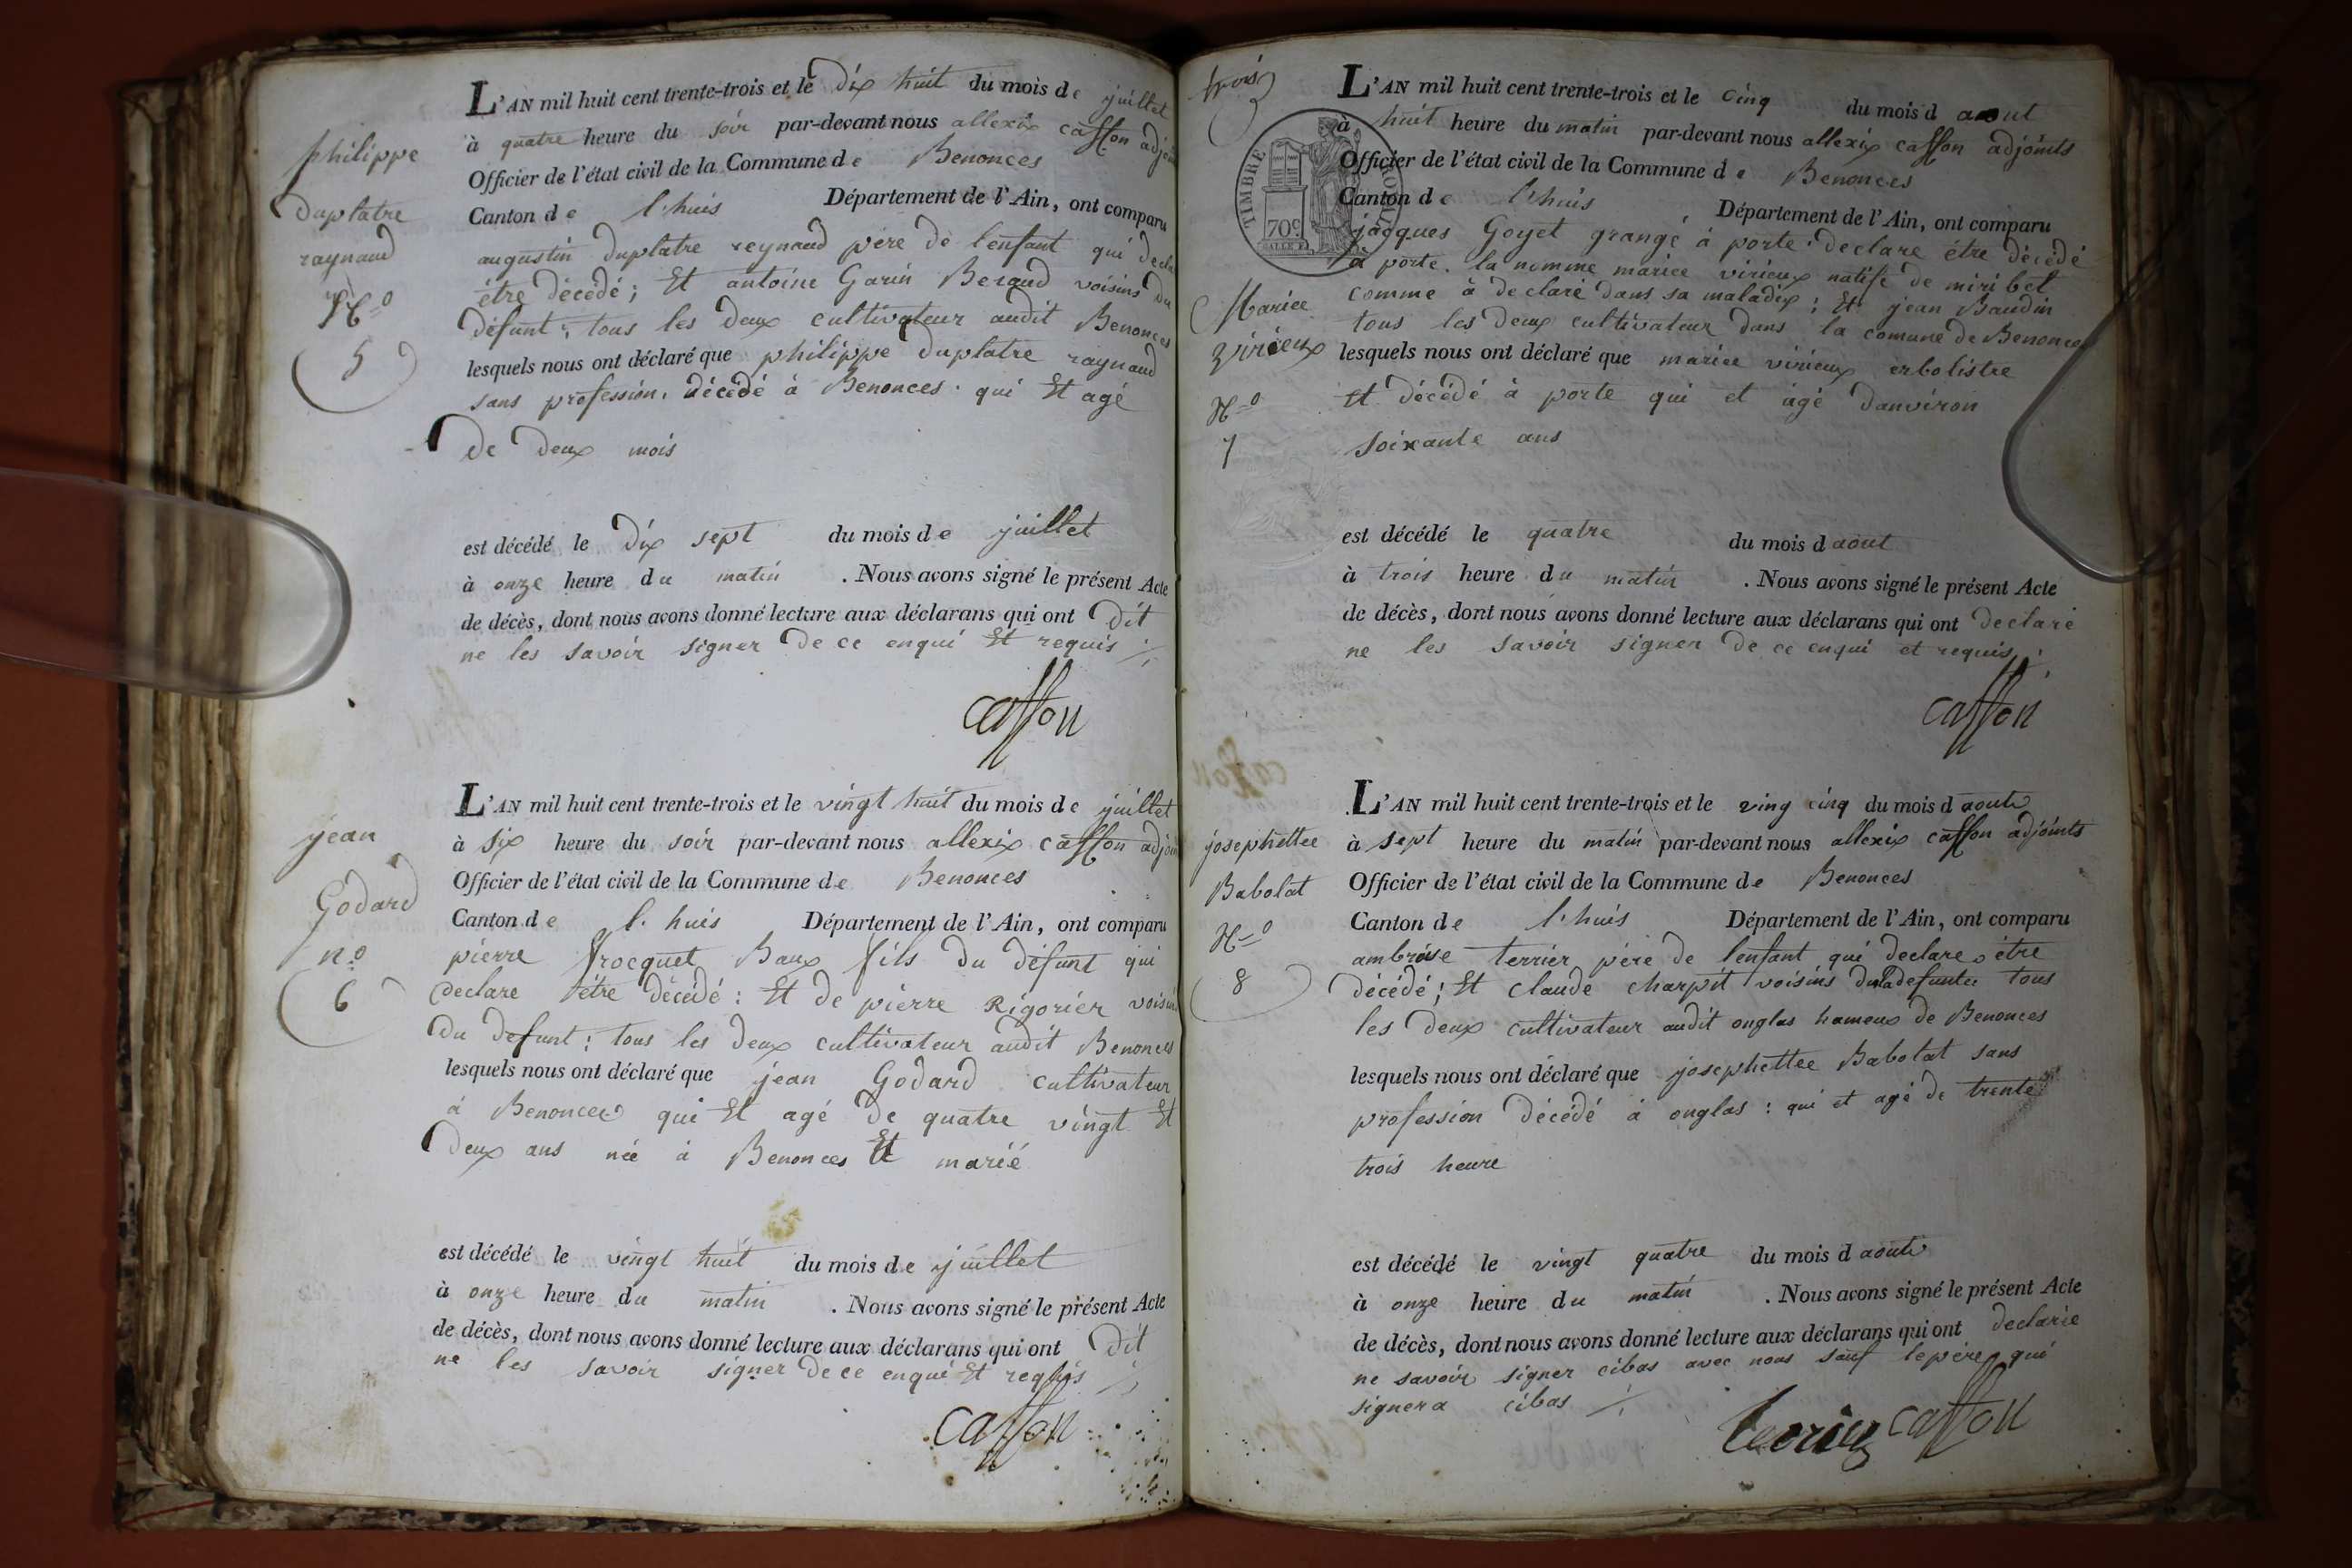 philippe
duplatre
raynaud
N°
5
L'AN mil huit cent trente-trois et le dix huit du mois de juillet
à quatre heure du soir par-devant nous allexix casson adjoin
Officier de l'état civil de la Commune de Benonces
Canton de l'huis Département de l'Ain, ont comparu
augustin duplatre reynaud père de l'enfant qui decla
être décédé; Et antoine Garin Beraud voisins du
défunt; tous les deux cultivateur audit Benonces
lesquels nous ont déclaré que philippe duplatre raynaud
sans profession. décédé à Benonces. qui Et agé
de deux mois
est décédé le dix sept du mois de juillet
à onze heure du matin . Nous avons signé le présent Acte
de décès, dont nous avons donné lecture aux déclarans qui ont dit
ne les savoir signer de ce enqui Et requis
casson
jean
Godard
n°
6
L'AN mil huit cent trente-trois et le vingt huit du mois de juillet
à six heure du soir par-devant nous allexix casson adjoin
Officier de l'état civil de la Commune de Benonces
Canton de l'huis Département de l'Ain, ont comparu
pierre trocquet Baux fils du défunt qui
declare être décédé: Et de pierre Rigorier voisin
du defunt: tous les deux cultivateur audit Benonces
lesquels nous ont déclaré que jean Godard cultivateur
à Benonces qui Et agé de quatre vingt Et
deux ans née à Benonces Et marié
est décédé le vingt huit du mois de juillet
à onze heure du matin . Nous avons signé le présent Acte
de décès, dont nous avons donné lecture aux déclarans qui ont dit
ne les savoir signer de ce enqui Et requis
casson
trois
TIMBRE ROYAL
70c
Mariee
virieux
N°
7
L'AN mil huit cent trente-trois et le cinq du mois d aout
à huit heure du matin par-devant nous allexix casson adjoints
Officier de l'état civil de la Commune de Benonces
Canton de l'huis Département de l'Ain, ont comparu
jacques Goyet grangé à porte. declare être décédé
à porte. la nomme mariee virieux natife de miribel
comme à declaré dans sa maladix; Et jean Baudin
tous les deux cultivateur dans la comune de Benonces
lesquels nous ont déclaré que mariee virieux erbolistre
Et décédé à porte qui et agé danviron
soixante ans
est décédé le quatre du mois d aout
à trois heure du matin . Nous avons signé le présent Acte
de décès, dont nous avons donné lecture aux déclarans qui ont declaré
ne les savoir signer de ce enqui et requis
casson
josephettee
Babolat
N°
8
L'AN mil huit cent trente-trois et le ving cinq du mois d aout
à sept heure du matin par-devant nous allexix casson adjoints
Officier de l'état civil de la Commune de Benonces
Canton de l'huis Département de l'Ain, ont comparu
ambroise terrier père de l'enfant qui declare être
décédé; Et claude charpit voisins de la defuntee tous
les deux cultivateur audit onglas hameux de Benonces
lesquels nous ont déclaré que josephettee Babolat sans
profession décédé à onglas: qui et agé de trente
trois heure
est décédé le vingt quatre du mois d aout
à onze heure du matin . Nous avons signé le présent Acte
de décès, dont nous avons donné lecture aux déclarans qui ont declarée
ne savoir signer cibas avec nous sauf le père qui
signera cibas
casson